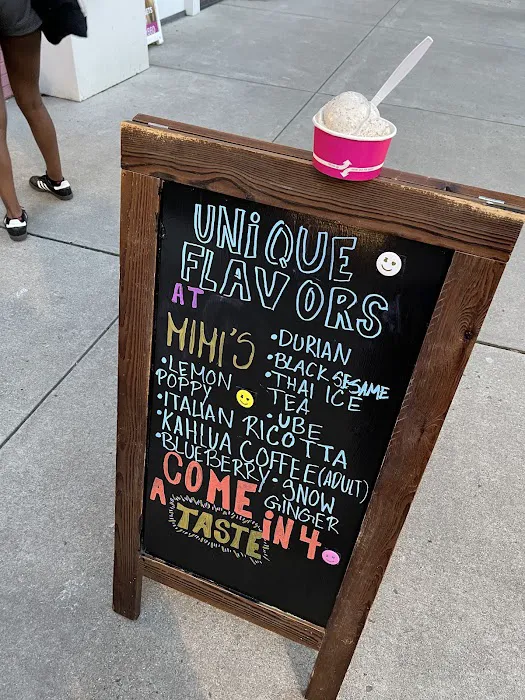 UNiQUE
FLAVORS
AT
MIMI'S
•LEMON
POPPY
•ITALIAN RICOTTA
•KAHLUA COFFEE(ADULT)
•BLUEBERRY
•DURIAN
•BLACK SESAME
•THAI ICE
TEA
•UBE
•SNOW
GINGER
COME iN 4
A TASTE